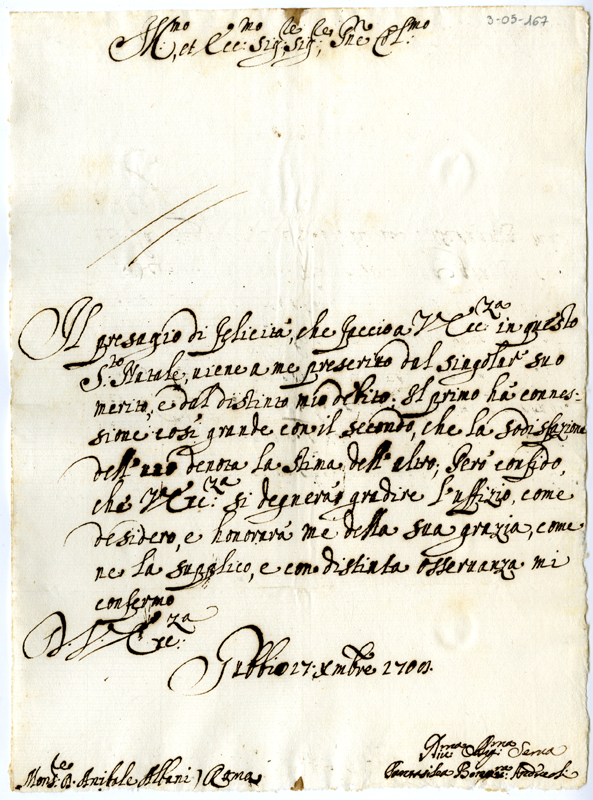 3-05-167
Ill.mo et Ecc.mo Sig.re Sig.re Pne Col.mo
Il presagio di felicità, che faccio a V. Ecc.za in questo
S.to Natale, viene a me prescritto dal singolar suo
merito, e dal distinto mio debito. Il primo hà connes-
sione così grande con il secondo, che la sodisfazione
dell' uno denota la stima dell' altro; Però confido,
che V. Ecc.za si degnerà gradire l'uffizio, come
desidero, e honorarà me della sua grazia, come
ne la supplico, e con distinta osservanza mi
confermo
D. V. Ecc.za
Gubbio 17: Xmbre 170
Mons.re D. Anibale Albani) Roma
Serva